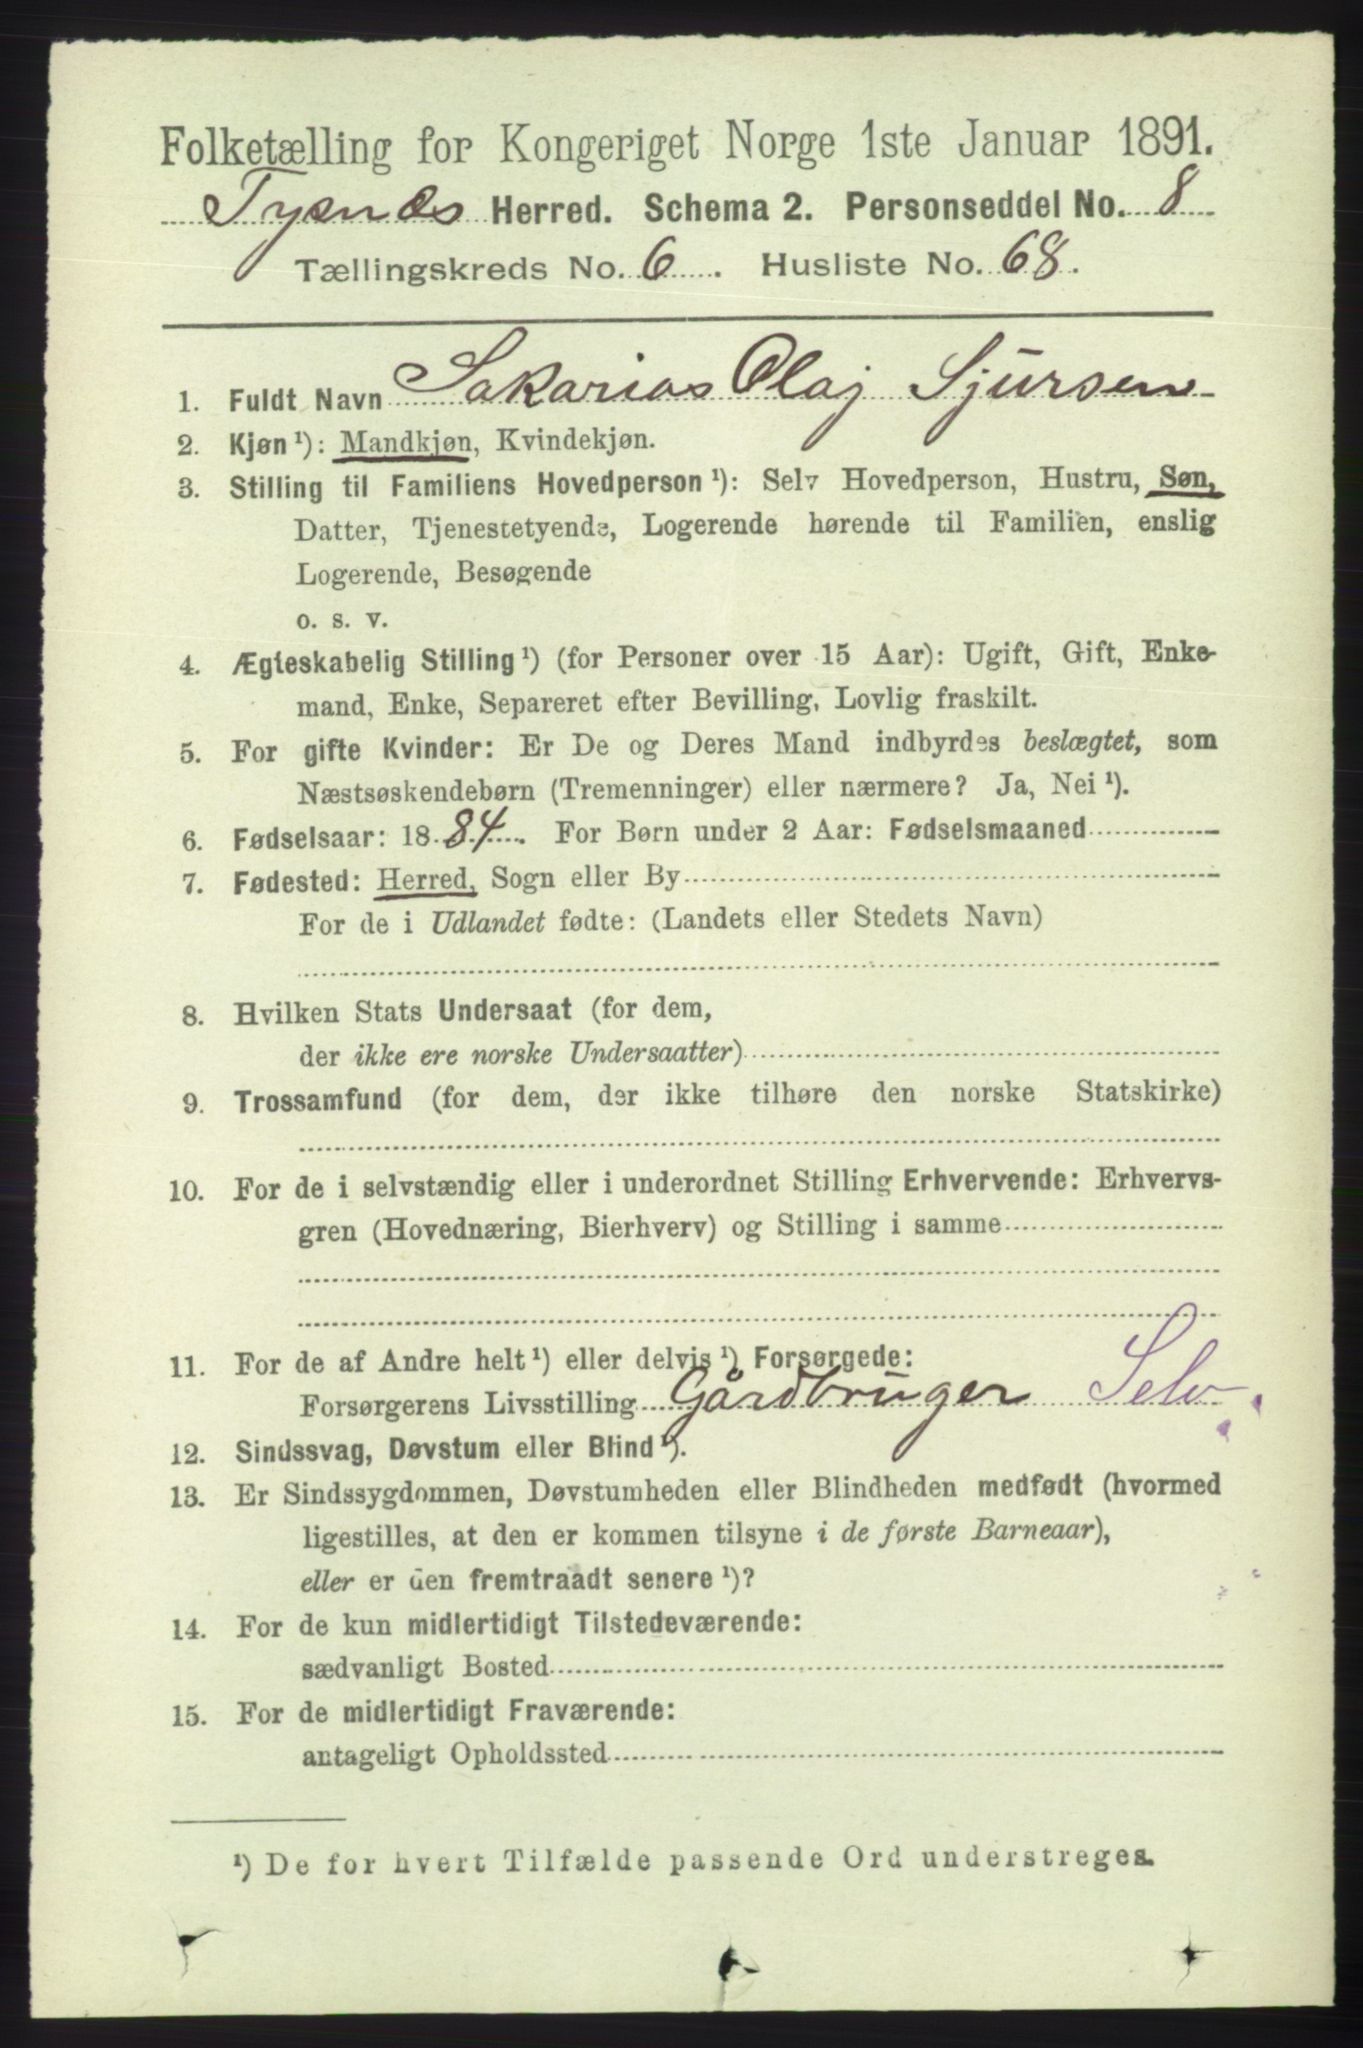 Folketælling for Kongeriget Norge 1ste Januar 1891.
Tysnæs Herred. Schema 2. Personseddel No. 8
Tællingskreds No. 6. Husliste No. 68.
1. Fuldt Navn Sakarias Olaj Sjursen
2. Kjøn¹): Mandkjøn, Kvindekjøn.
3. Stilling til Familiens Hovedperson¹): Selv Hovedperson, Hustru, Søn,
Datter, Tjenestetyende, Logerende hørende til Familien, enslig
Logerende, Besøgende
o. s. v.
4. Ægteskabelig Stilling¹) (for Personer over 15 Aar): Ugift, Gift, Enke-
mand, Enke, Separeret efter Bevilling, Lovlig fraskilt.
5. For gifte Kvinder: Er De og Deres Mand indbyrdes beslægtet, som
Næstsøskendebørn (Tremenninger) eller nærmere? Ja, Nei¹).
6. Fødselsaar: 1884. For Børn under 2 Aar: Fødselsmaaned
7. Fødested: Herred, Sogn eller By
For de i Udlandet fødte: (Landets eller Stedets Navn)
8. Hvilken Stats Undersaat (for dem,
der ikke ere norske Undersaatter)
9. Trossamfund (for dem, der ikke tilhøre den norske Statskirke)
10. For de i selvstændig eller i underordnet Stilling Erhvervende: Erhvervs-
gren (Hovednæring, Bierhverv) og Stilling i samme
11. For de af Andre helt¹) eller delvis¹) Forsørgede:
Forsørgerens Livsstilling Gårdbruger Selv
12. Sindssvag, Døvstum eller Blind¹).
13. Er Sindssygdommen, Døvstumheden eller Blindheden medfødt (hvormed
ligestilles, at den er kommen tilsyne i de første Barneaar),
eller er den fremtraadt senere¹)?
14. For de kun midlertidigt Tilstedeværende:
sædvanligt Bosted
15. For de midlertidigt Fraværende:
antageligt Opholdssted
¹) De for hvert Tilfælde passende Ord understreges.